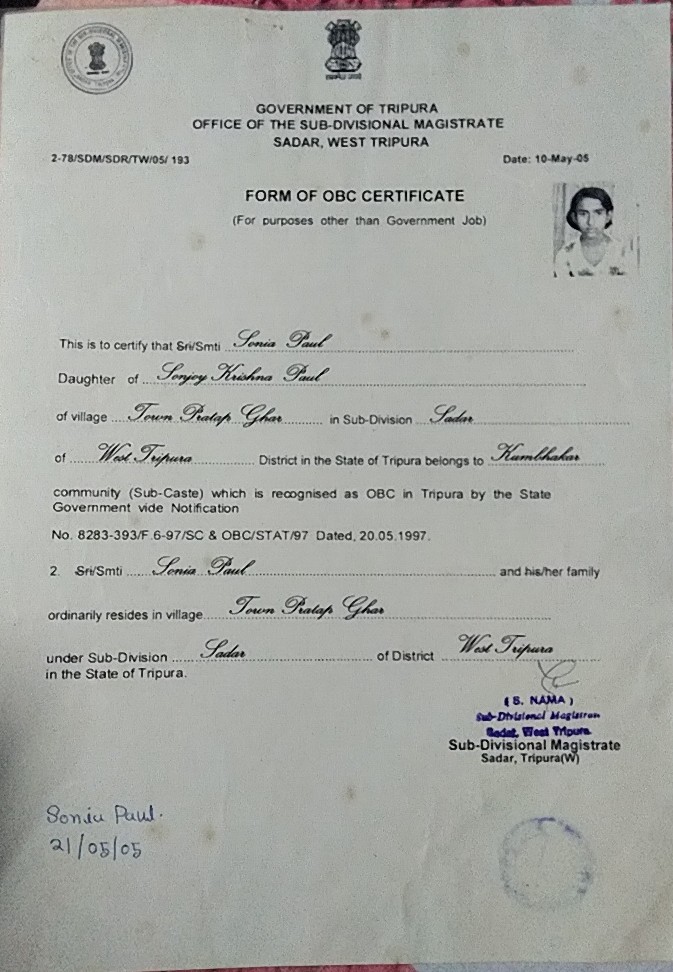 GOVERNMENT OF TRIPURA
OFFICE OF THE SUB-DIVISIONAL MAGISTRATE
SADAR, WEST TRIPURA
2-78/SDM/SDR/TW/05/ 193 Date: 10-May-05
FORM OF OBC CERTIFICATE
(For purposes other than Government Job)
This is to certify that Sri/Smti Sonia Paul
Daughter of Sonjoy Krishna Paul
of village Town Pratap Ghar in Sub-Division Sadar
of West Tripura District in the State of Tripura belongs to Kumbhakar
community (Sub-Caste) which is recognised as OBC in Tripura by the State
Government vide Notification
No. 8283-393/F.6-97/SC & OBC/STAT/97 Dated, 20.05.1997.
2. Sri/Smti Sonia Paul and his/her family
ordinarily resides in village Town Pratap Ghar
under Sub-Division Sadar of District West Tripura
in the State of Tripura.
(S. NAMA)
Sub-Divisional Magistrate
Sadar, West Tripura
Sub-Divisional Magistrate
Sadar, Tripura(W)
Sonia Paul.
21/05/05